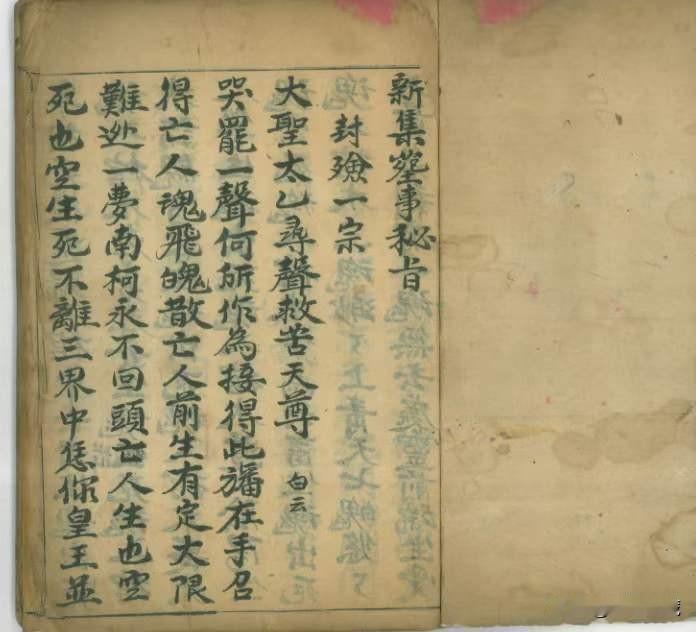 新集塋事秘旨
封殮一宗
大聖太乙尋聲救苦天尊 白云
哭罷一聲何所作為接得此旛在手召
得亡人魂飛魄散亡人前生有定大限
難迯一夢南柯永不回頭亡人生也空
死也空生死不離三界中恁你皇王並